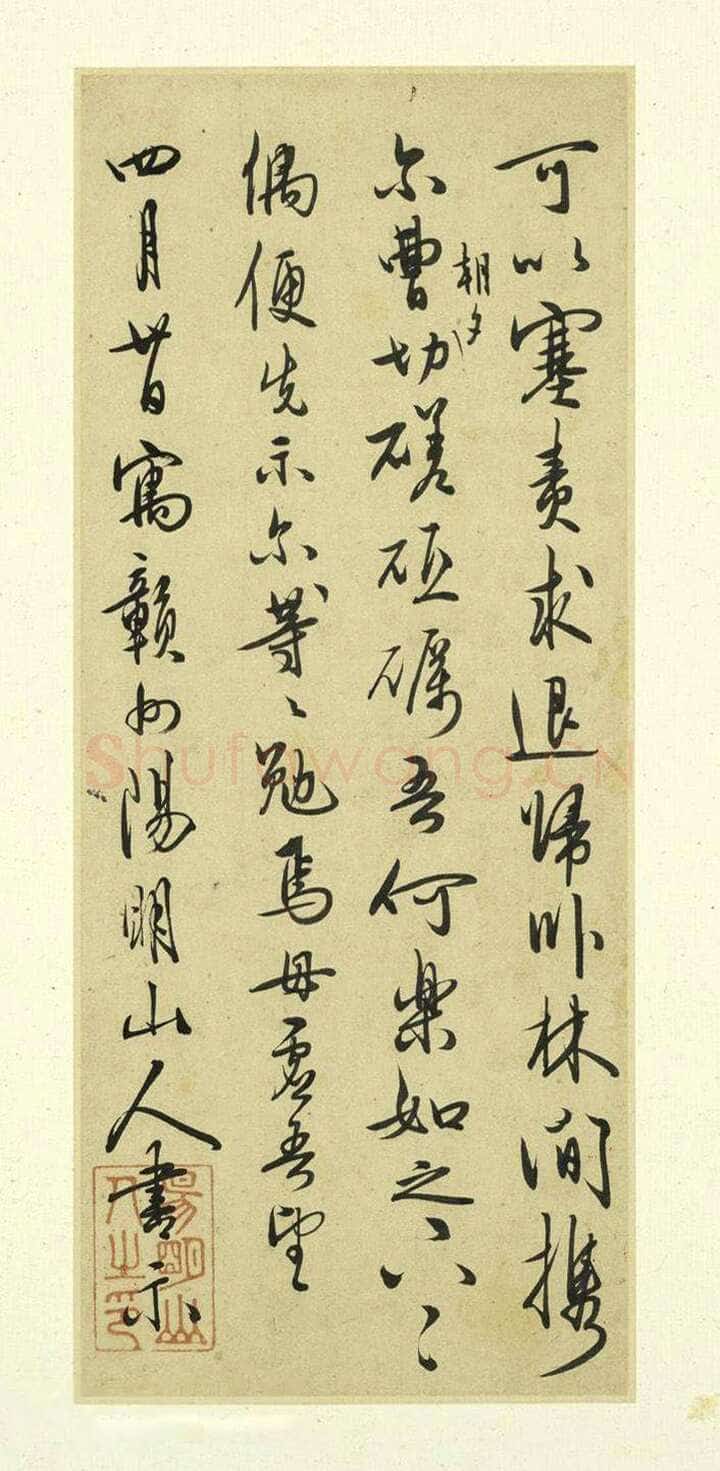 可以塞责求退歸卧林間携
尔曹朝夕切磋砥礪吾何樂如之
偶便先示尔等〻勉焉毋虚吾望
四月卅日寓贛州陽明山人書示
陽明山
人之印
Shufawang.CN